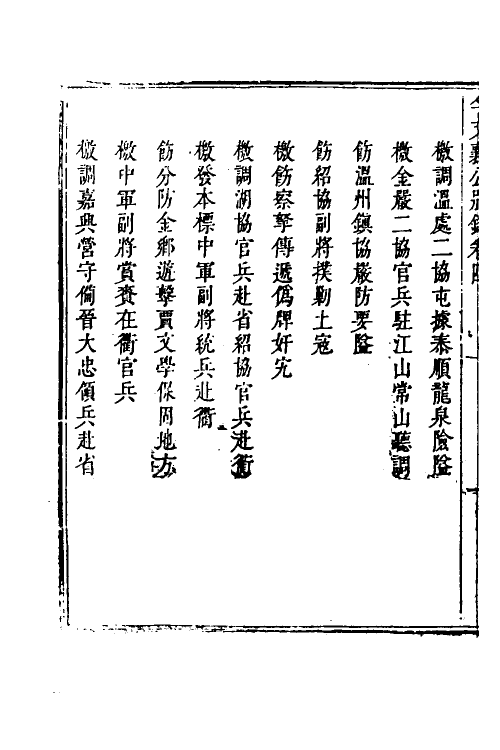 檄調溫處二協屯據泰順龍泉險隘
檄金嚴二協官兵駐江山常山聽調
飭溫州鎮協嚴防要隘
飭紹協副將撲勦土寇
檄飭察拏傳遞僞牌奸宄
檄調湖協官兵赴省紹協官兵赴衢
檄發本標中軍副將統兵赴衢
飭分防金鄉遊擊賈文學保固地方
檄中軍副將賞賚在衢官兵
檄調嘉興營守備晉大忠領兵赴省